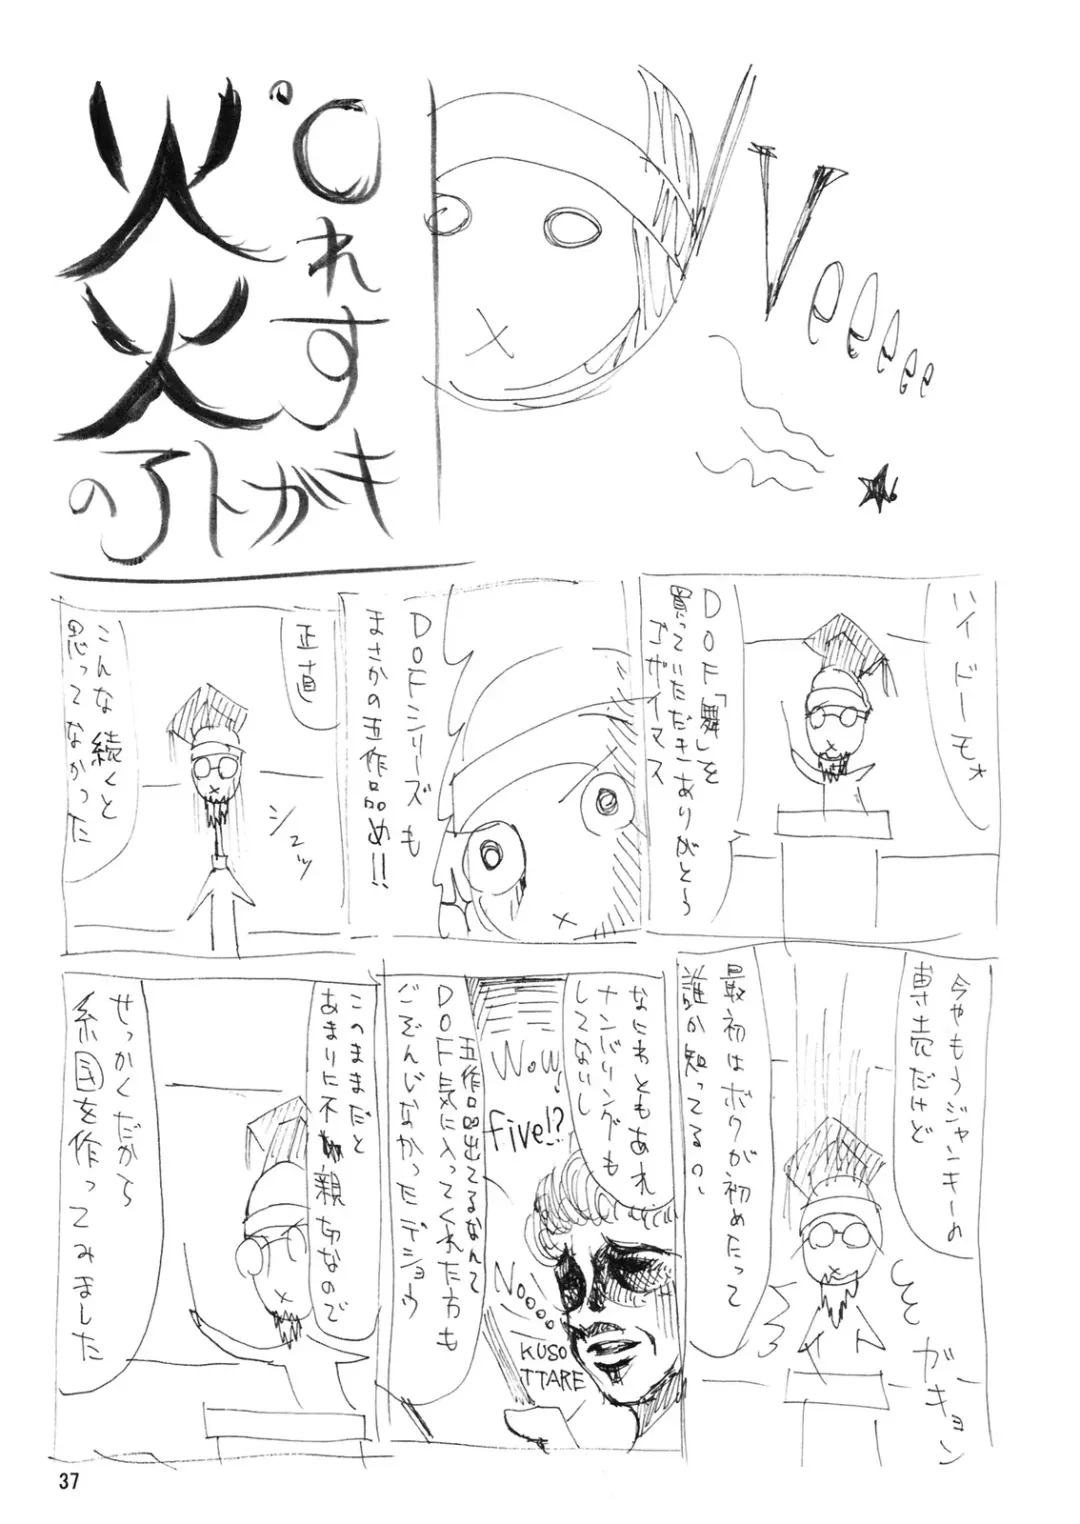 °Cれすガキ
炎のアトガキ
Veeeeee
ハイドーモ
DOF「舞」を
買っていただきありがとう
ゴザイーマス
DOFシリーズも
まさかの五作品め!!
正直
シュッ
こんな続くと
思ってなかった
今やもうジャンキーの
専売だけど
最初はボクが初めたって
誰か知ってるの、
ガキョン
なにわともあれ
ナンバリングも
してないし
Wow!
five!?
五作品出てるなんて
DOF気に入ってくれた方も
ごぞんじなかったデショウ
Noooo
KUSO
TTARE
このままだと
あまりに不親切なので
せっかくだから
系図を作ってみました
37